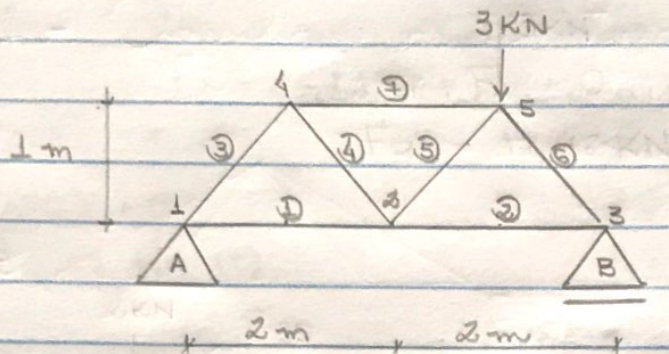 3 KN
4 ⑦ 5
1 m ③ ④ ⑤ ⑥
1 ① 2 ② 3
A B
2 m 2 m